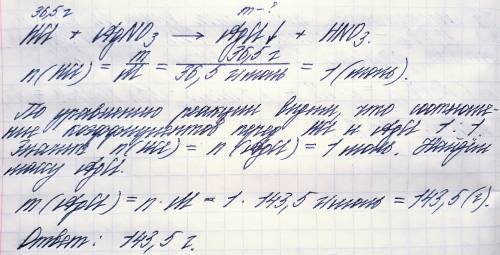 36,5 г m-?
HCl + AgNO₃ → AgCl↓ + HNO₃.
n(HCl) = m/M = 36,5 г/36,5 г/моль = 1(моль).
По уравнению реакции видим, что соотноше-
ние коэффициентов перед HCl и AgCl 1:1.
Значит n(HCl) = n(AgCl) = 1 моль. Находим
массу AgCl.
m(AgCl) = n · M = 1 · 143,5 г/моль = 143,5(г).
Ответ: 143,5 г.